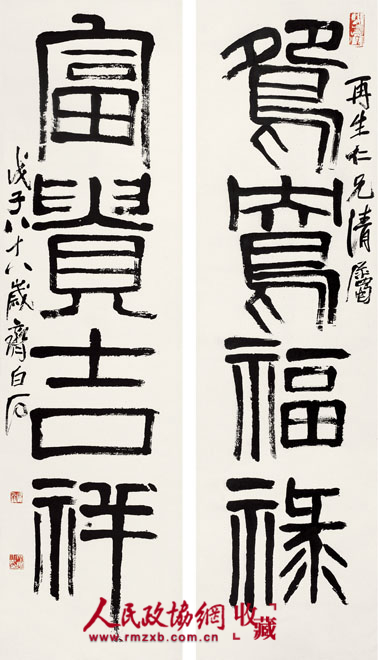 再生仁兄清屬
鴛鴦福祿
富貴吉祥
戊子八十八歲齊白石
人民政協網收藏
www.rmzxb.com.cn